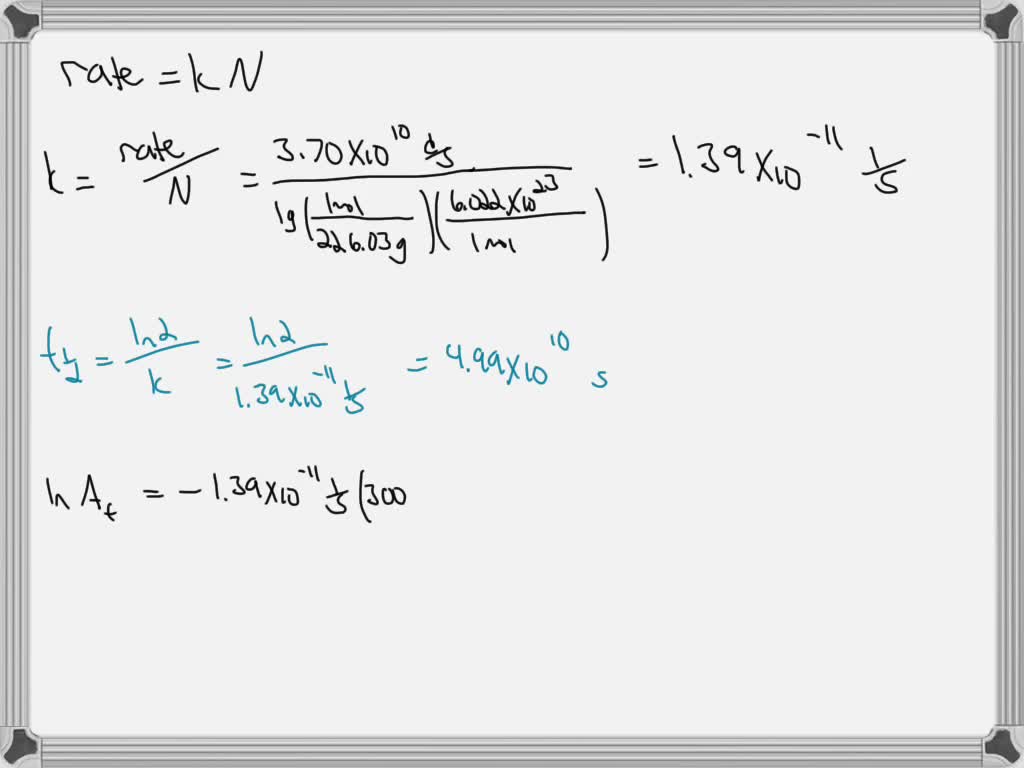 rate = kN
k = rate/N = 3.70×10^10 d/s / 1g(1mol/226.03g)(6.022×10^23/1mol) = 1.39×10^-11 1/s
t1/2 = ln2/k = ln2/1.39×10^-11 1/s = 4.99×10^10 s
ln At = -1.39×10^-11 1/s (300